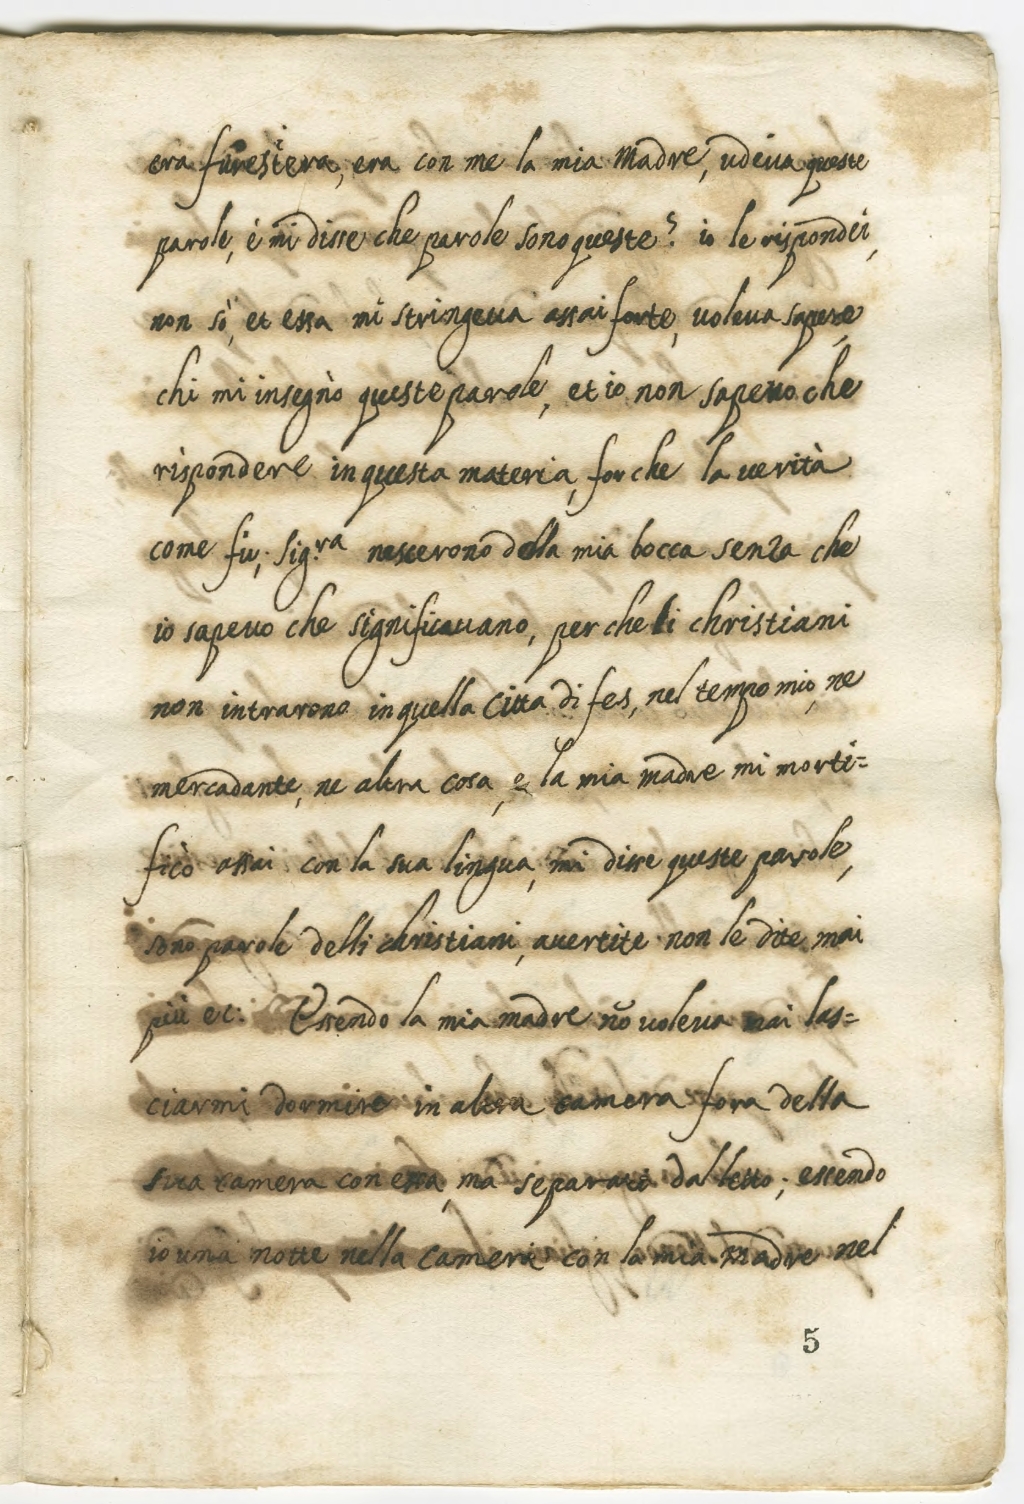 era furestiera, era con me la mia Madre, udeiva queste
parole, é mi disse che parole sono queste? io le rispondei,
non sò, et essa mi stringeva assai forte, voleva sapere,
chi mi insegnò queste parole, et io non sapevo che
rispondere in questa materia, for che la verità
come fù, Sig.ra nascerono della mia bocca senza che
io sapevo che significavano, perche li christiani
non intrarono in quella Citta di fes, nel tempo mio, ne
mercadante, ne altra cosa, e la mia madre mi morti=
ficò assai con la sua lingua, mi disse queste parole,
sono parole delli christiani, avertite non le dite mai
più ec: Essendo la mia madre nõ voleva mai las=
ciarmi dormire in altra camera fora della
sua camera con essa, ma separati dal letto; essendo
io una notte nella camera con la mia Madre nel
5